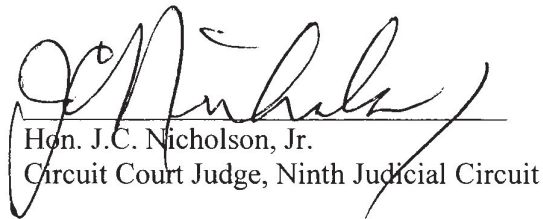 JC Nicholson
Hon. J.C. Nicholson, Jr.
Circuit Court Judge, Ninth Judicial Circuit